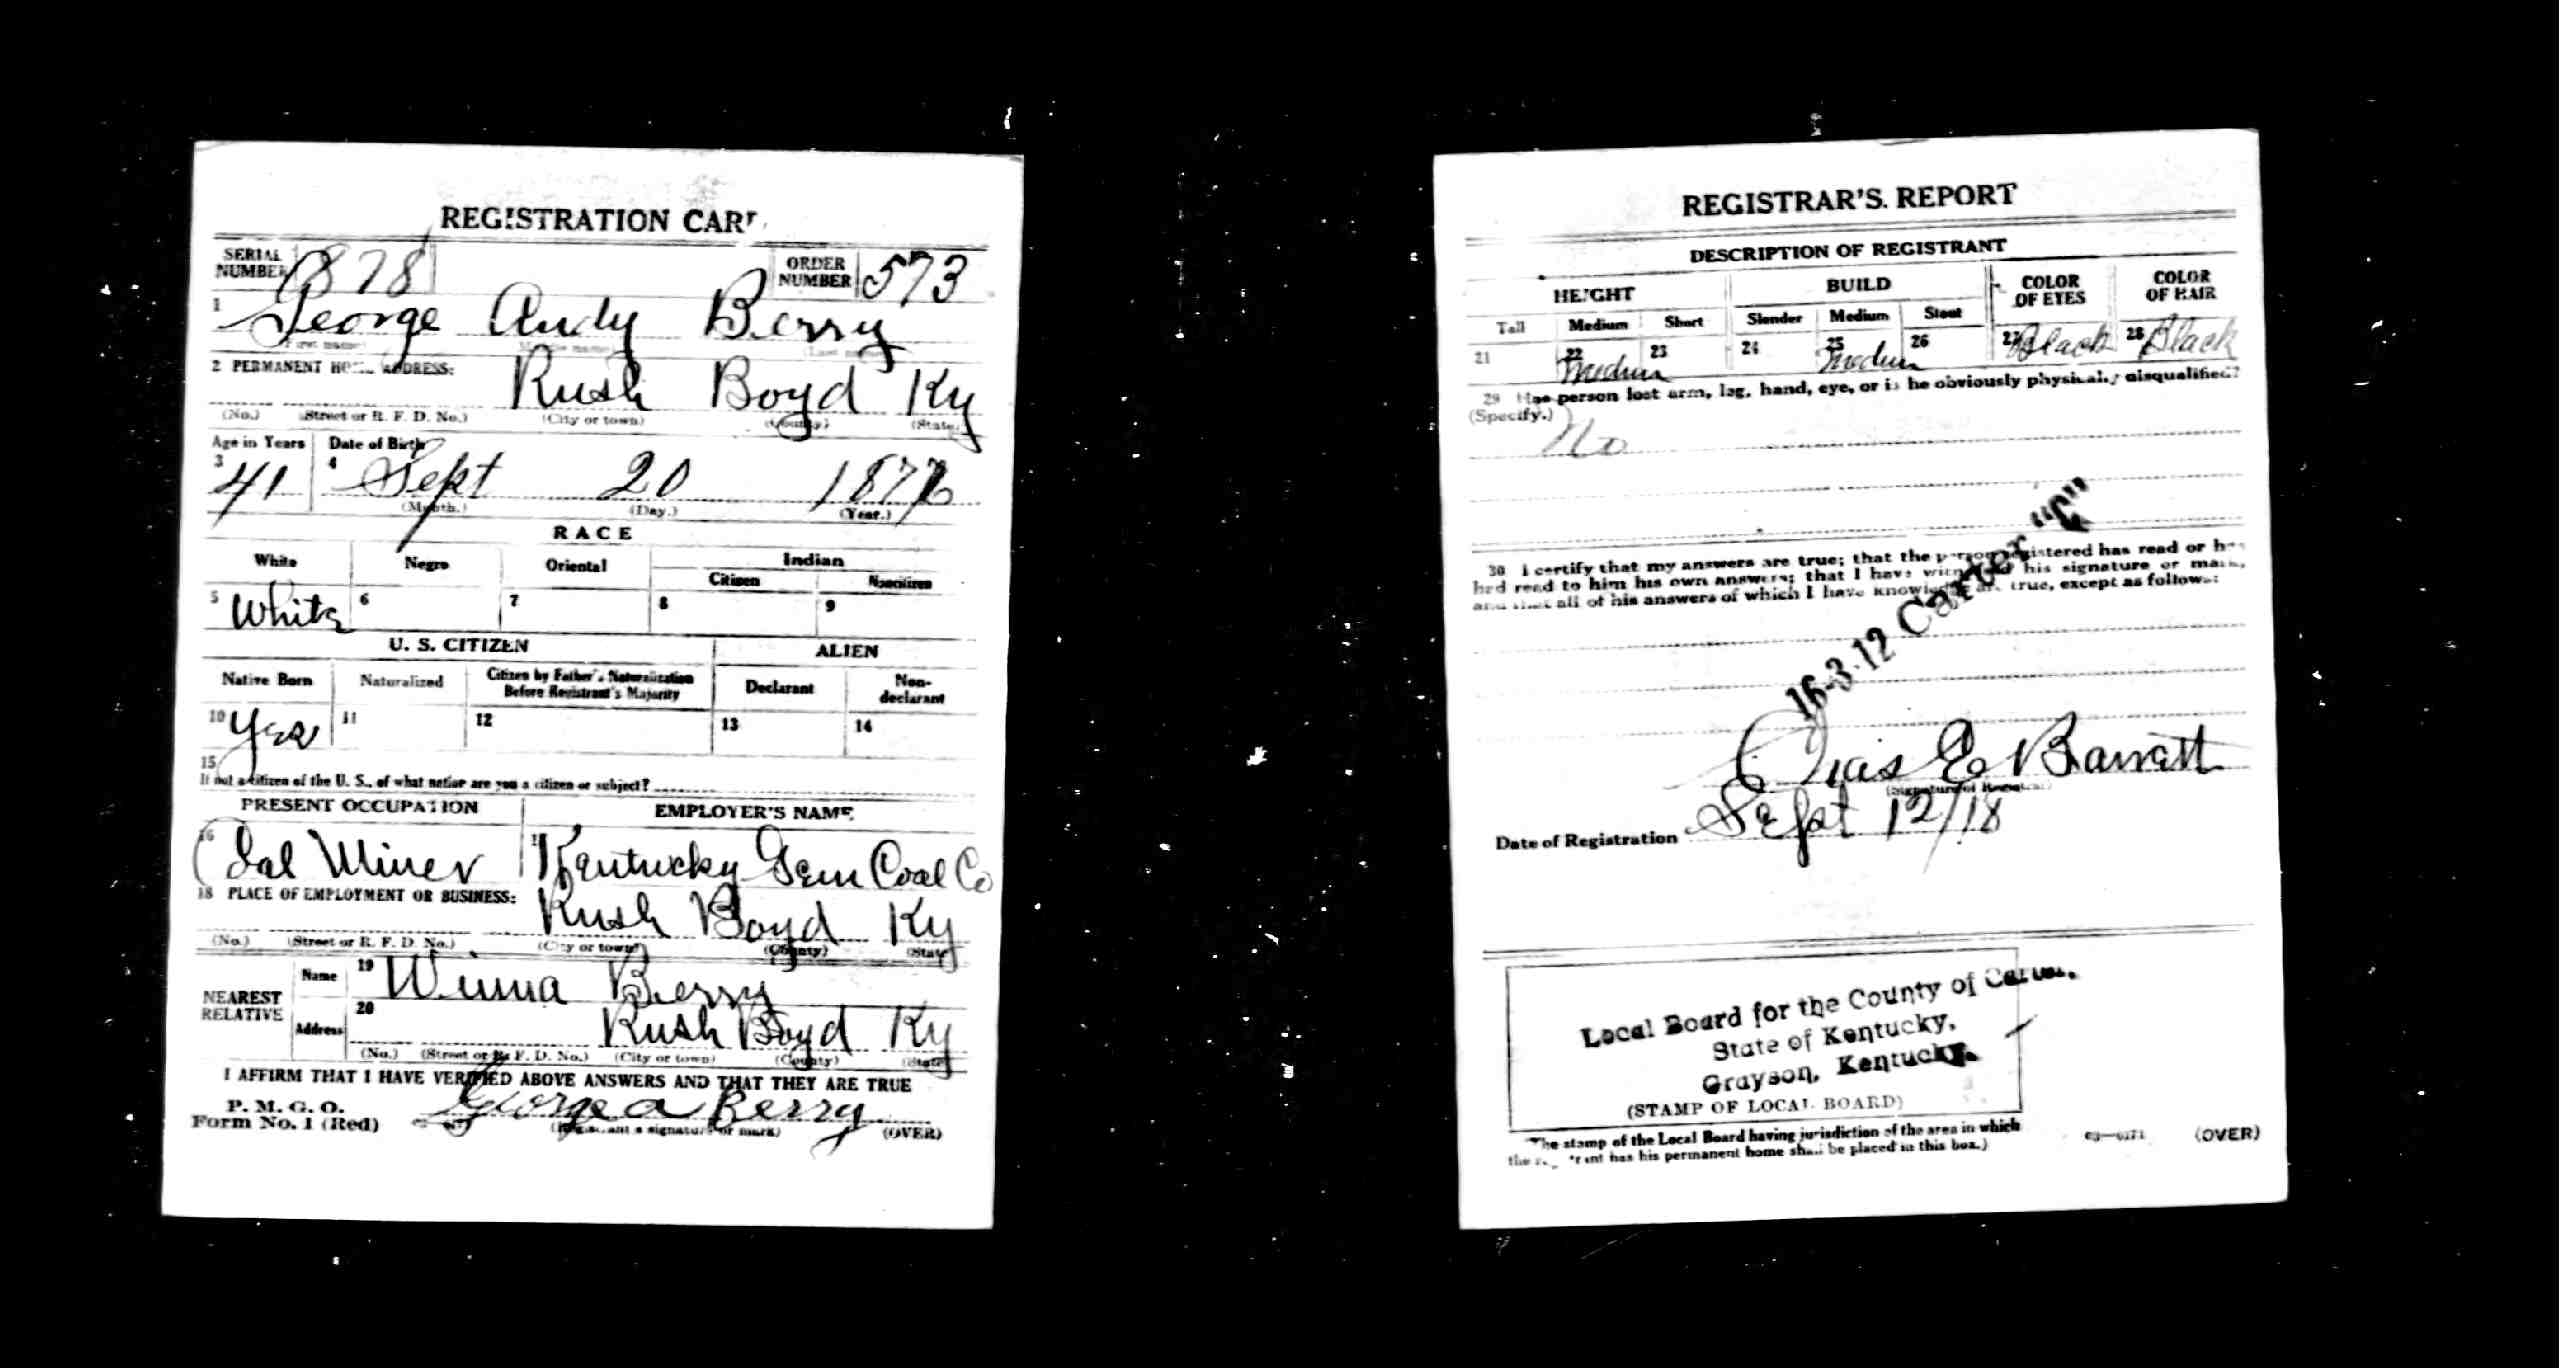 REGISTRATION CARD
SERIAL NUMBER 878 ORDER NUMBER 573
1 George Andy Berry
(First name) (Middle name) (Last name)
2 PERMANENT HOME ADDRESS:
Rush Boyd Ky
(No.) (Street or R. F. D. No.) (City or town) (County) (State)
Age in Years Date of Birth
3 41 4 Sept 20
(Month.) (Day.) (Year.)
RACE
White Negro Oriental Indian
Citizen Noncitizen
5 White 6 7 8 9
U. S. CITIZEN ALIEN
Native Born Naturalized Citizen by Father's Naturalization Before Registrant's Majority Declarant Non-declarant
10 Yes 11 12 13 14
15
If not a citizen of the U. S., of what nation are you a citizen or subject?
PRESENT OCCUPATION EMPLOYER'S NAME
16 Coal Miner 17 Kentucky Gem Coal Co
18 PLACE OF EMPLOYMENT OR BUSINESS:
Rush Boyd Ky
(No.) (Street or R. F. D. No.) (City or town) (County) (State)
NEAREST RELATIVE
Name 19 Berry
Address 20 Rush Boyd Ky
(No.) (Street or R. F. D. No.) (City or town) (County) (State)
I AFFIRM THAT I HAVE VERIFIED ABOVE ANSWERS AND THAT THEY ARE TRUE
P. M. G. O.
Form No. 1 (Red) George a Berry
(Registrant's signature or mark) (OVER)
REGISTRAR'S REPORT
DESCRIPTION OF REGISTRANT
HEIGHT BUILD COLOR OF EYES COLOR OF HAIR
Tall Medium Short Slender Medium Stout
21 22 Medium 23 24 25 Medium 26 27 Black 28 Black
29 Has person lost arm, leg, hand, eye, or is he obviously physically disqualified?
(Specify.)
No
30 I certify that my answers are true; that the person registered has read or has
had read to him his own answers; that I have witnessed his signature or mark,
and that all of his answers of which I have knowledge are true, except as follows:
16-3-12 Carter "C"
E Barrett
(Signature of Registrar)
Date of Registration Sept 12/18
Local Board for the County of Carter,
State of Kentucky,
Grayson, Kentucky.
(STAMP OF LOCAL BOARD)
(The stamp of the Local Board having jurisdiction of the area in which
the registrant has his permanent home shall be placed in this box.)
(OVER)